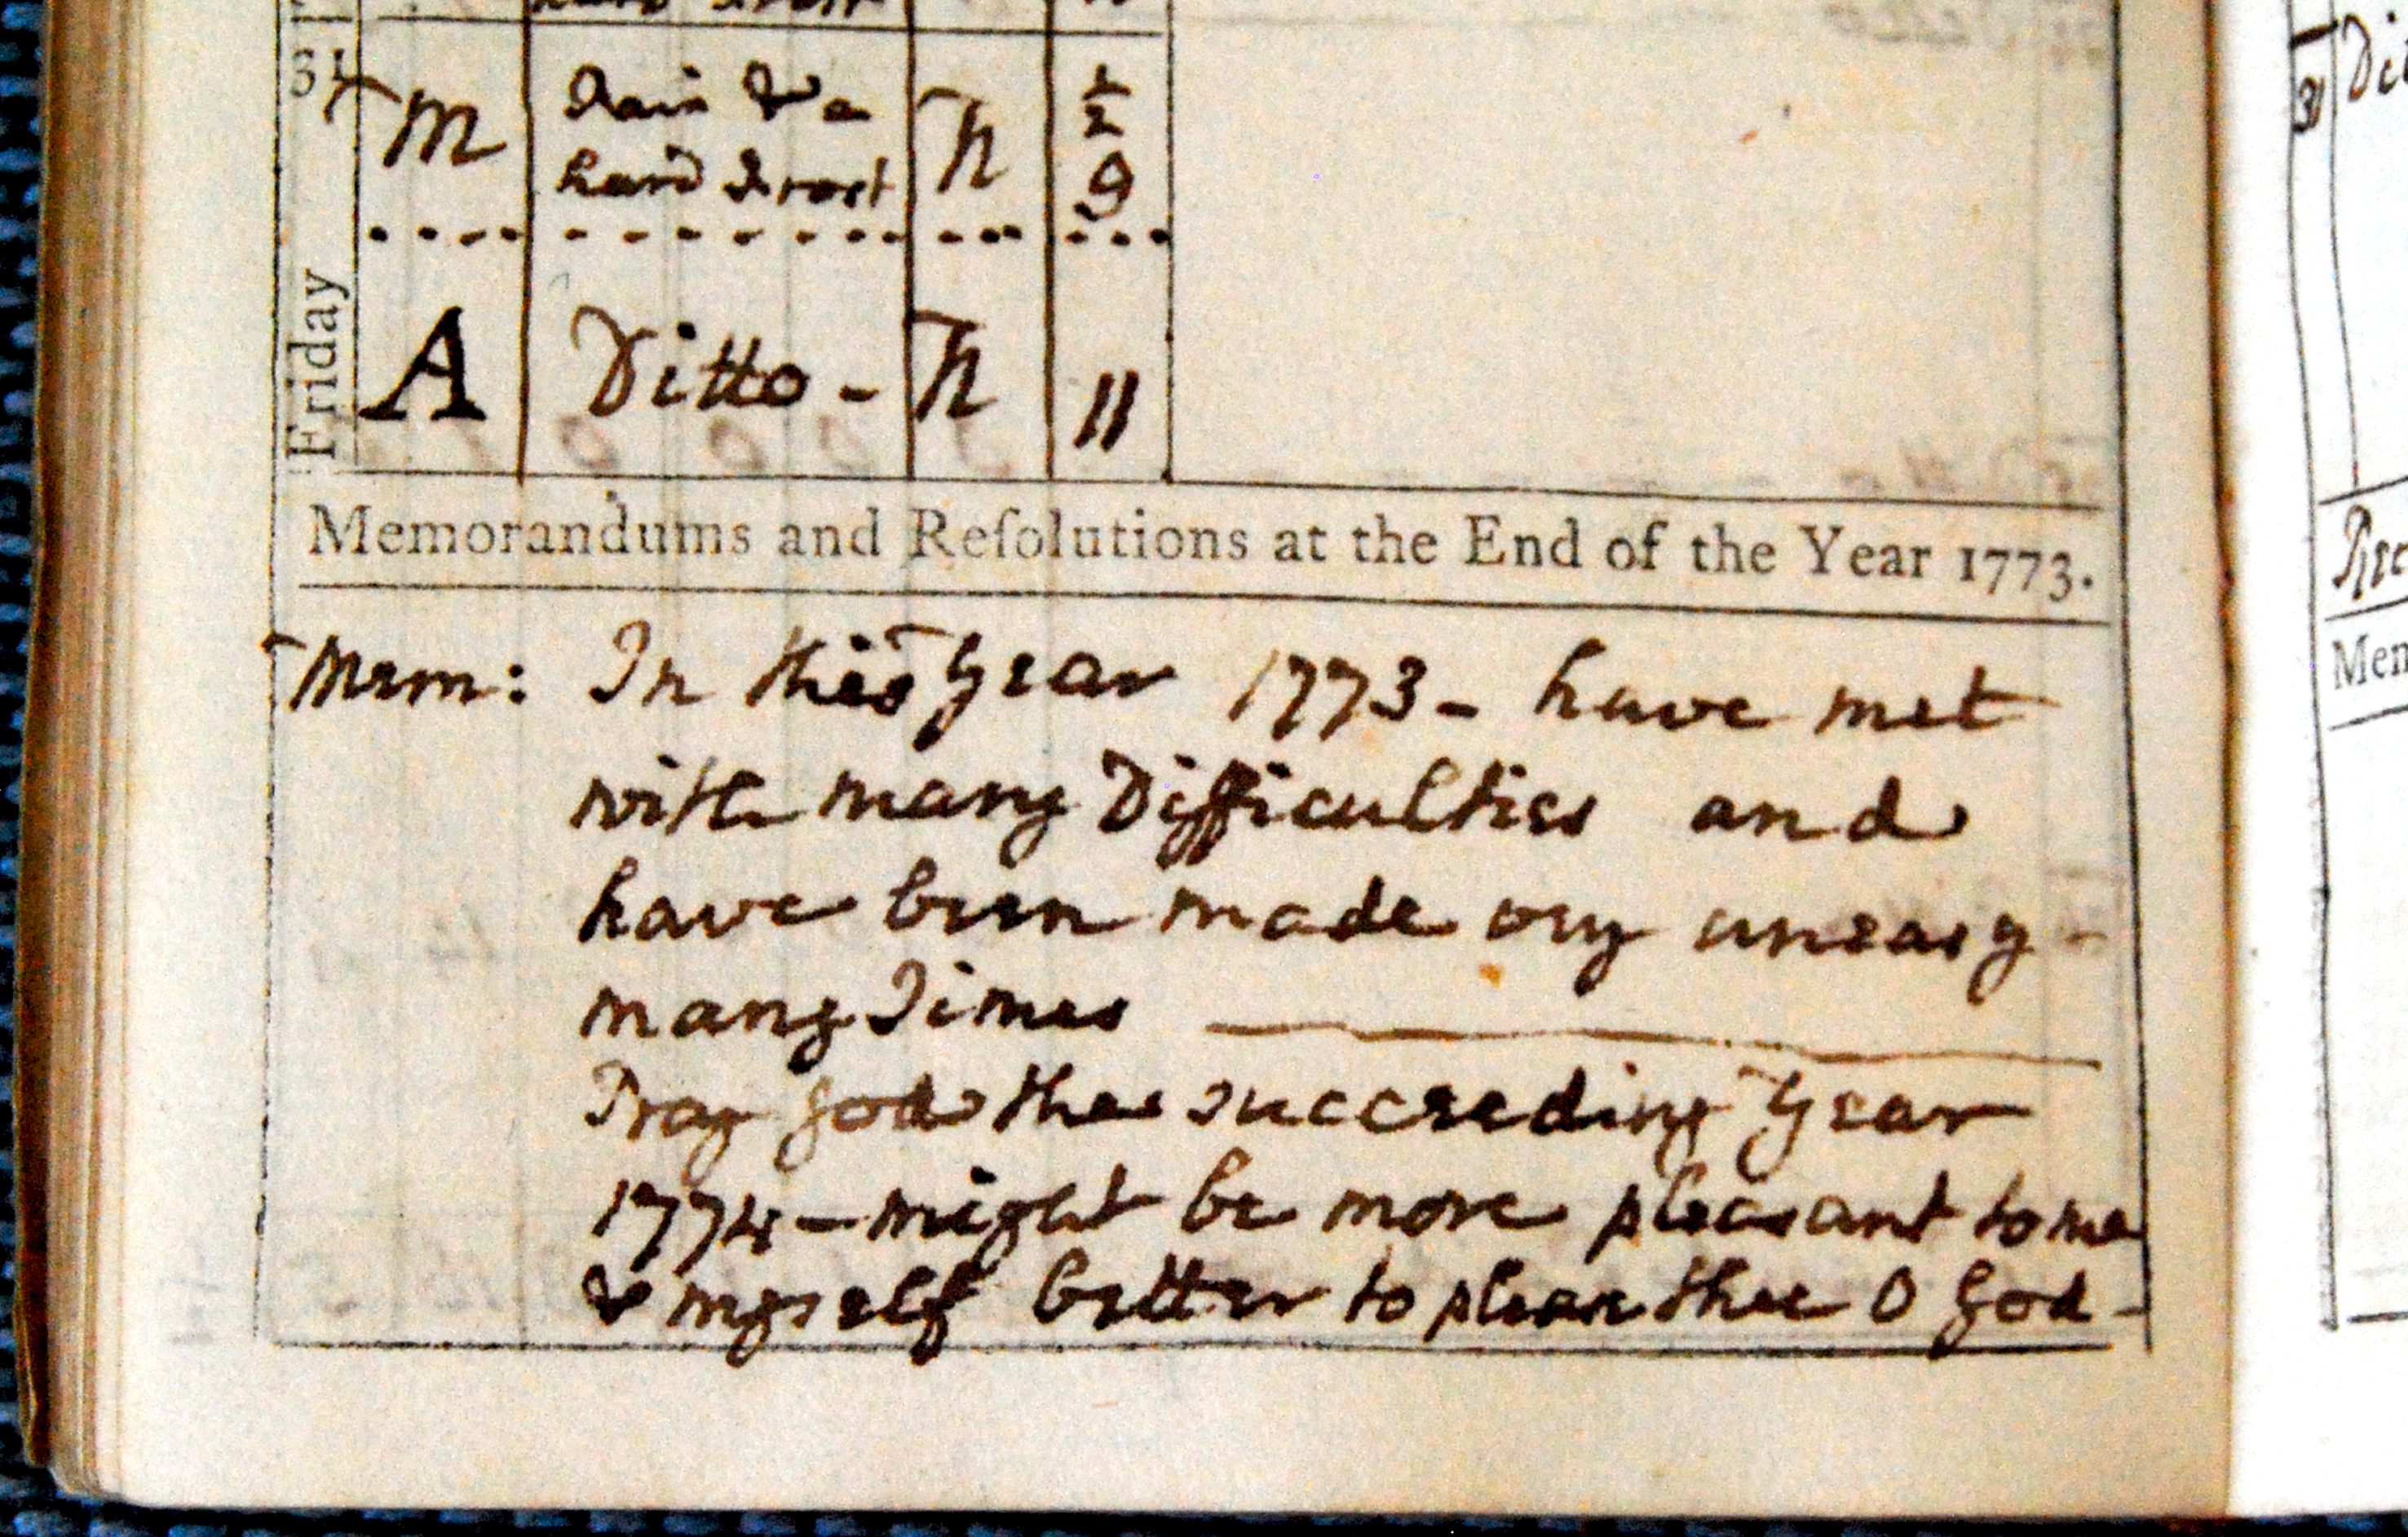 hard Frost
31 M Fair & a h 1/2
hard Frost 9
Friday A Ditto - h 11
Memorandums and Reſolutions at the End of the Year 1773.
Mem: In this Year 1773 - have met
with many Difficulties and
have been made very uneasy -
many Times
Pray God the succeeding Year
1774 - might be more pleasant to me
& myself better to please thee O God -
31 Di
Rec
Mem